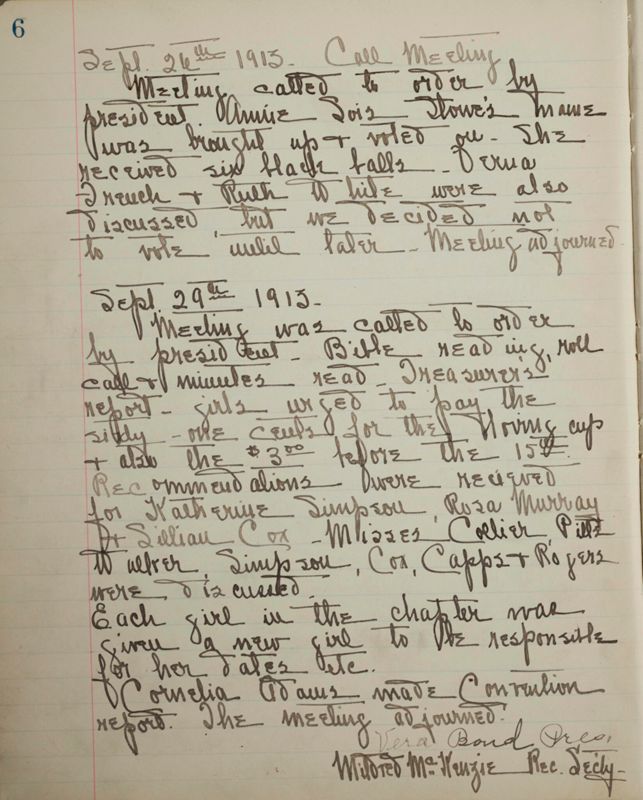 6
Sept. 26th 1913. Call Meeting
Meeting called to order by
president. Annie Lois Stowe's name
was brought up + voted on. She
received six black balls. Verna
French + Ruth White were also
discussed, but we decided not
to vote until later. Meeting adjourned.
Sept. 29th 1913.
Meeting was called to order
by president. Bible reading, roll
call + minutes read. Treasurer's
report. girls urged to pay the
sixty-one cents for the loving cup
+ also the $3.00 before the 15th.
Recommendations were recieved
for Katherine Simpson, Rosa Murray
+ Lillian Cox. Misses Collier, Pitts
Walker, Simpson, Cox, Capps + Rogers
were discussed.
Each girl in the chapter was
given a new girl to be responsible
for her dates etc.
Cornelia Adams made Convention
report. The meeting adjourned.
Vera Bond Pres.
Mildred McKenzie Rec. Sec'ty.